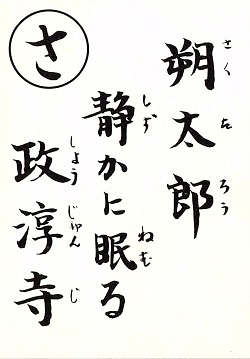 さ
朔太郎
さくたろう
静かに眠る
しずねむ
政淳寺
しょうじゅんじ